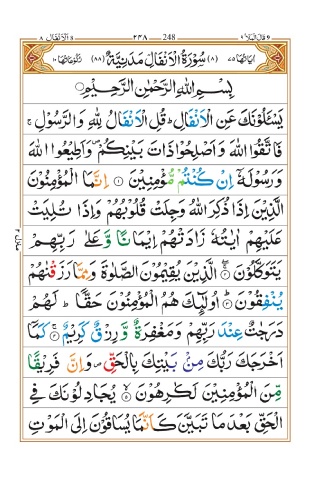 قال الملا ٩ 248 ٢٣٨ الانفال ٨
اٰیَاتُهَا ٧٥ (٨) سُوْرَةُ الْاَنْفَالِ مَدَنِیَّةٌ (٨٨) رُكُوْعَاتُهَا ١٠
بِسْمِ اللّٰهِ الرَّحْمٰنِ الرَّحِیْمِ
یَسْـَٔلُوْنَكَ عَنِ الْاَنْفَالِ ؕ قُلِ الْاَنْفَالُ لِلّٰهِ وَ الرَّسُوْلِ ۚ
فَاتَّقُوا اللّٰهَ وَ اَصْلِحُوْا ذَاتَ بَیْنِكُمْ ۪ وَ اَطِیْعُوا اللّٰهَ
وَ رَسُوْلَهٗۤ اِنْ كُنْتُمْ مُّؤْمِنِیْنَ ۝۱ اِنَّمَا الْمُؤْمِنُوْنَ
الَّذِیْنَ اِذَا ذُكِرَ اللّٰهُ وَ جِلَتْ قُلُوْبُهُمْ وَ اِذَا تُلِیَتْ
عَلَیْهِمْ اٰیٰتُهٗ زَادَتْهُمْ اِیْمَانًا وَّ عَلٰى رَبِّهِمْ
یَتَوَكَّلُوْنَ ۝۲ الَّذِیْنَ یُقِیْمُوْنَ الصَّلٰوةَ وَ مِمَّا رَزَقْنٰهُمْ
یُنْفِقُوْنَ ۝۳ اُولٰٓىِٕكَ هُمُ الْمُؤْمِنُوْنَ حَقًّا ؕ لَهُمْ
دَرَجٰتٌ عِنْدَ رَبِّهِمْ وَ مَغْفِرَةٌ وَّ رِزْقٌ كَرِیْمٌ ۝۴ كَمَاۤ
اَخْرَجَكَ رَبُّكَ مِنْۢ بَیْتِكَ بِالْحَقِّ ۪ وَ اِنَّ فَرِیْقًا
مِّنَ الْمُؤْمِنِیْنَ لَكٰرِهُوْنَ ۝۵ یُجَادِلُوْنَكَ فِی
الْحَقِّ بَعْدَ مَا تَبَیَّنَ كَاَنَّمَا یُسَاقُوْنَ اِلَى الْمَوْتِ